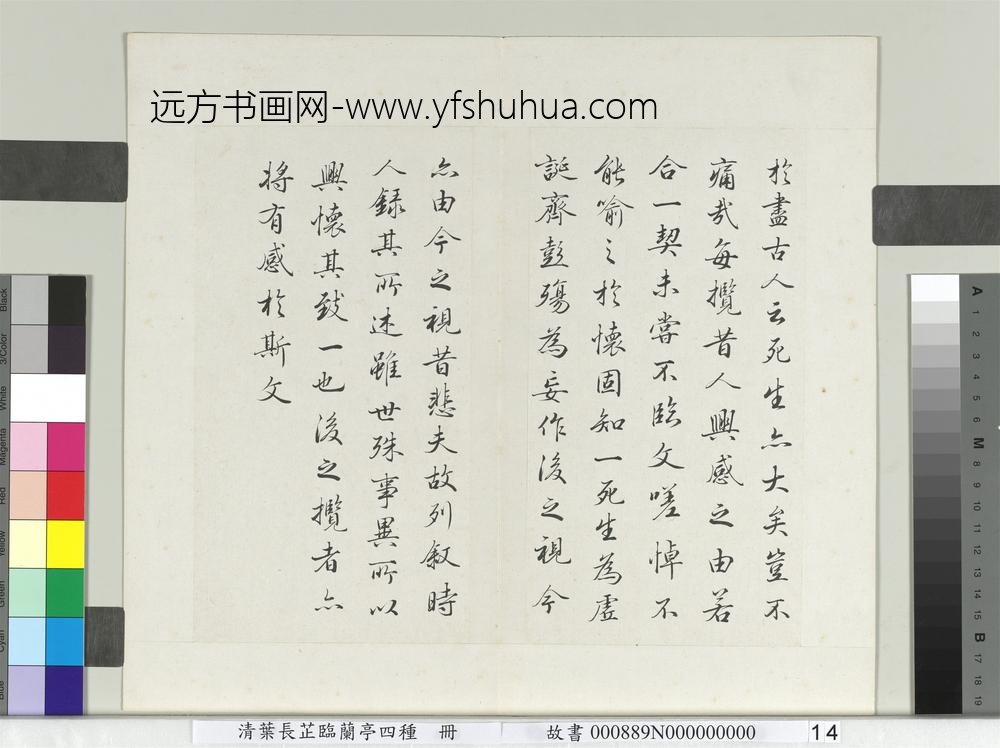 远方书画网-www.yfshuhua.com
於盡古人云死生亦大矣豈不
痛哉每攬昔人興感之由若
合一契未嘗不臨文嗟悼不
能喻之於懷固知一死生為虛
誕齊彭殤為妄作後之視今
亦由今之視昔悲夫故列敘時
人錄其所述雖世殊事異所以
興懷其致一也後之攬者亦
將有感於斯文
Black
3/Color
White
Magenta
Red
Yellow
Green
Cyan
Blue
A
1
2
3
4
5
6
M
8
9
10
11
12
13
14
15
B
17
18
19
清葉長芷臨蘭亭四種 冊
故書 000889N000000000
14